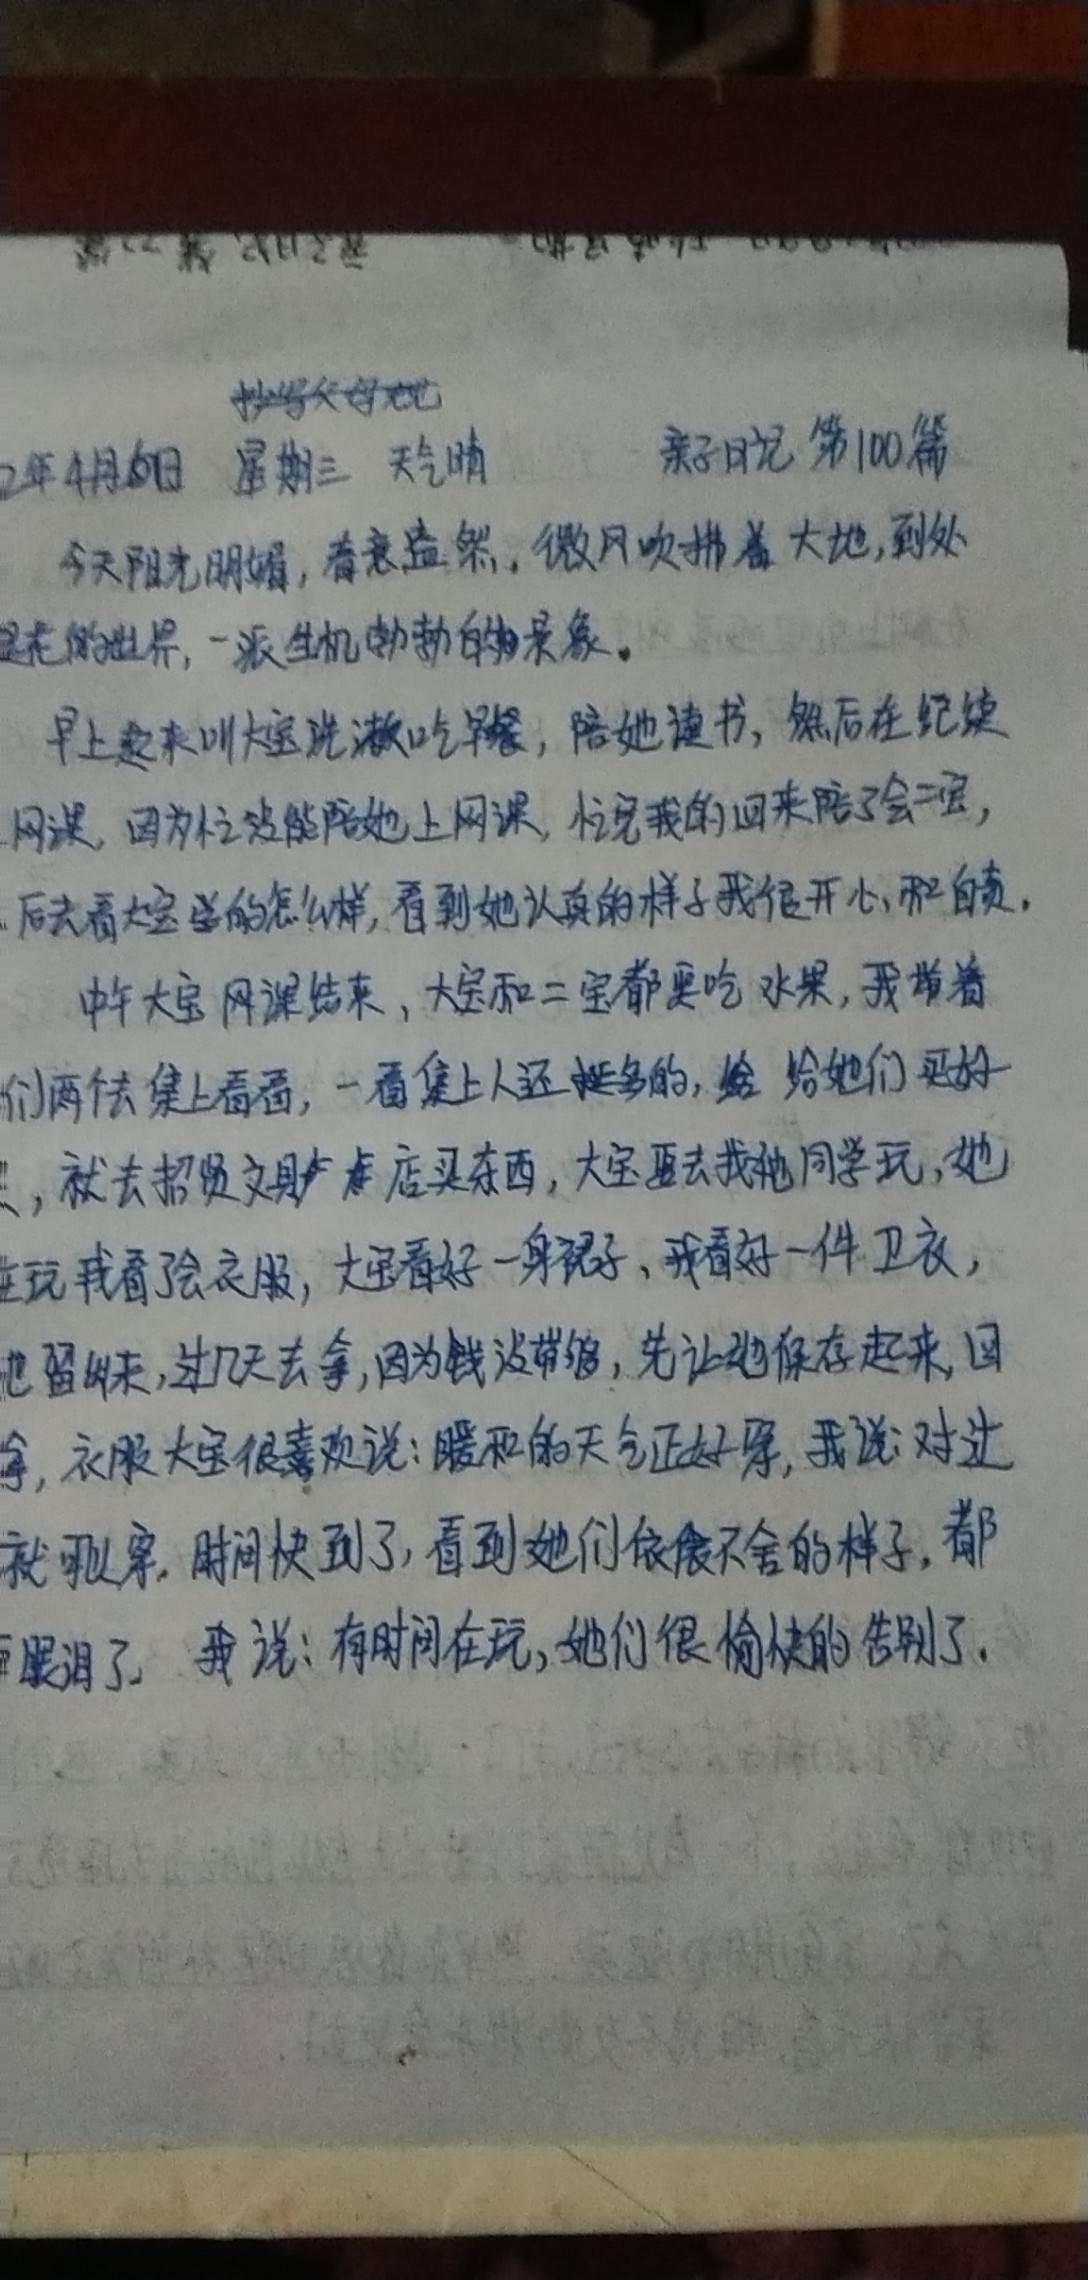 2年4月6日 星期三 天气晴 亲子日记 第100篇
今天阳光明媚,春意盎然,微风吹拂着大地,到处
是花的世界,一派生机勃勃的景象。
早上起来叫大宝洗漱吃早餐,陪她读书,然后在纪续
网课,因为忙没能陪她上网课,忙完我的回来陪了会二宝,
后去看大宝学的怎么样,看到她认真的样子我很开心和自责.
中午大宝网课结束,大宝和二宝都要吃水果,我带着
们两个去集上看看,一看集上人还挺多的,给她们买好
,就去招贤文具店买东西,大宝要去找她同学玩,她
在玩我看了会衣服,大宝看好一身裙子、我看好一件卫衣,
她留下来,过几天去拿,因为钱没带够,先让她保存起来,回
拿,衣服大宝很喜欢说:暖和的天气正好穿,我说:对过
就可以穿.时间快到了,看到她们依依不舍的样子,都
眼泪了,我说:有时间在玩,她们很愉快的告别了.